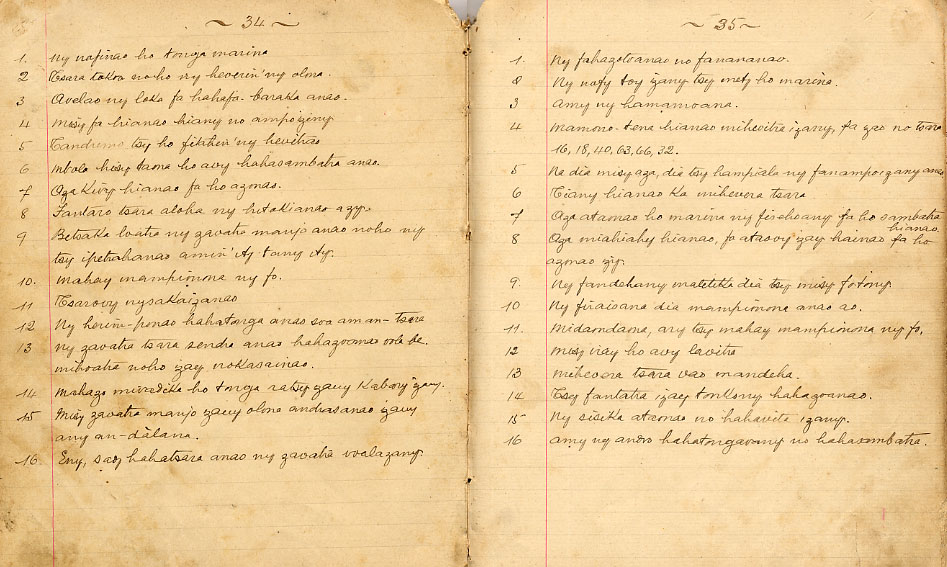 ~ 34 ~
1. Ny nofinao ho tonga marina
2 Tsara tokoa noho ny heverin' ny olona.
3 Avelao ny loka fa hahafa-baraka anao.
4 Misy fa hianao hiany no ampoiziny
5 Tandremo tsy ho fitahin' ny hevitrao
6 Mbola hisy taona ho avy hahasambatra anao.
7 Aza kivy hianao fa ho azonao.
8 Fantaro tsara aloha ny hitokianao azy.
9 Betsaka loatra ny zavatra manjo anao noho ny
tsy ipetrahanao amin' ity tany ity.
10. Mahay mampionona ny fo.
11 Tsarovy ny sakaizanao
12 Ny herim-ponao hahatonga anao soa aman-tsara
13 Ny zavatra tsara sendra anao hahazoanao vola be
mihoatra noho izay nokasainao.
14 Mahaga mivadika ho tonga ratsy izany kabary izany.
15 Misy zavatra manjo izany olona andrasanao izany
any an-dàlana.
16 Eny, sady hahatsara anao ny zavatra voalazany.
~ 35 ~
1. Ny fahazotoanao no fananano.
2 Ny nofy toy izany tsy mety ho marina.
3 Amy ny hamamoana.
4 Mamono-tena hianao mihevitra izany, fa izao no tsara
16, 18, 40, 63, 66, 32.
5 Na dia misy aza, dia tsy hampiala ny fanampoizany anao
6 Tiany hianao ka mihevera tsara
7 Aza ataonao ho marina ny fisehoany fa ho sambatra
hianao
8 Aza miahiahy hianao, fa ataovy izay hainao fa ho
azonao izy.
9. Ny fandehany matetika dia tsy misy fotony.
10 Ny firaisana dia mampionona anao ao.
11. Midaondaona, ary tsy mahay mampionona ny fo.
12 Misy iray ho avy lavitra
13 Mihevera tsara vao mandeha.
14 Tsy fantatra izay tonkony hahazoanao.
15 Ny sisika ataonao no hahavita izany.
16 Amy ny andro hahatongavany no hahasambatra.